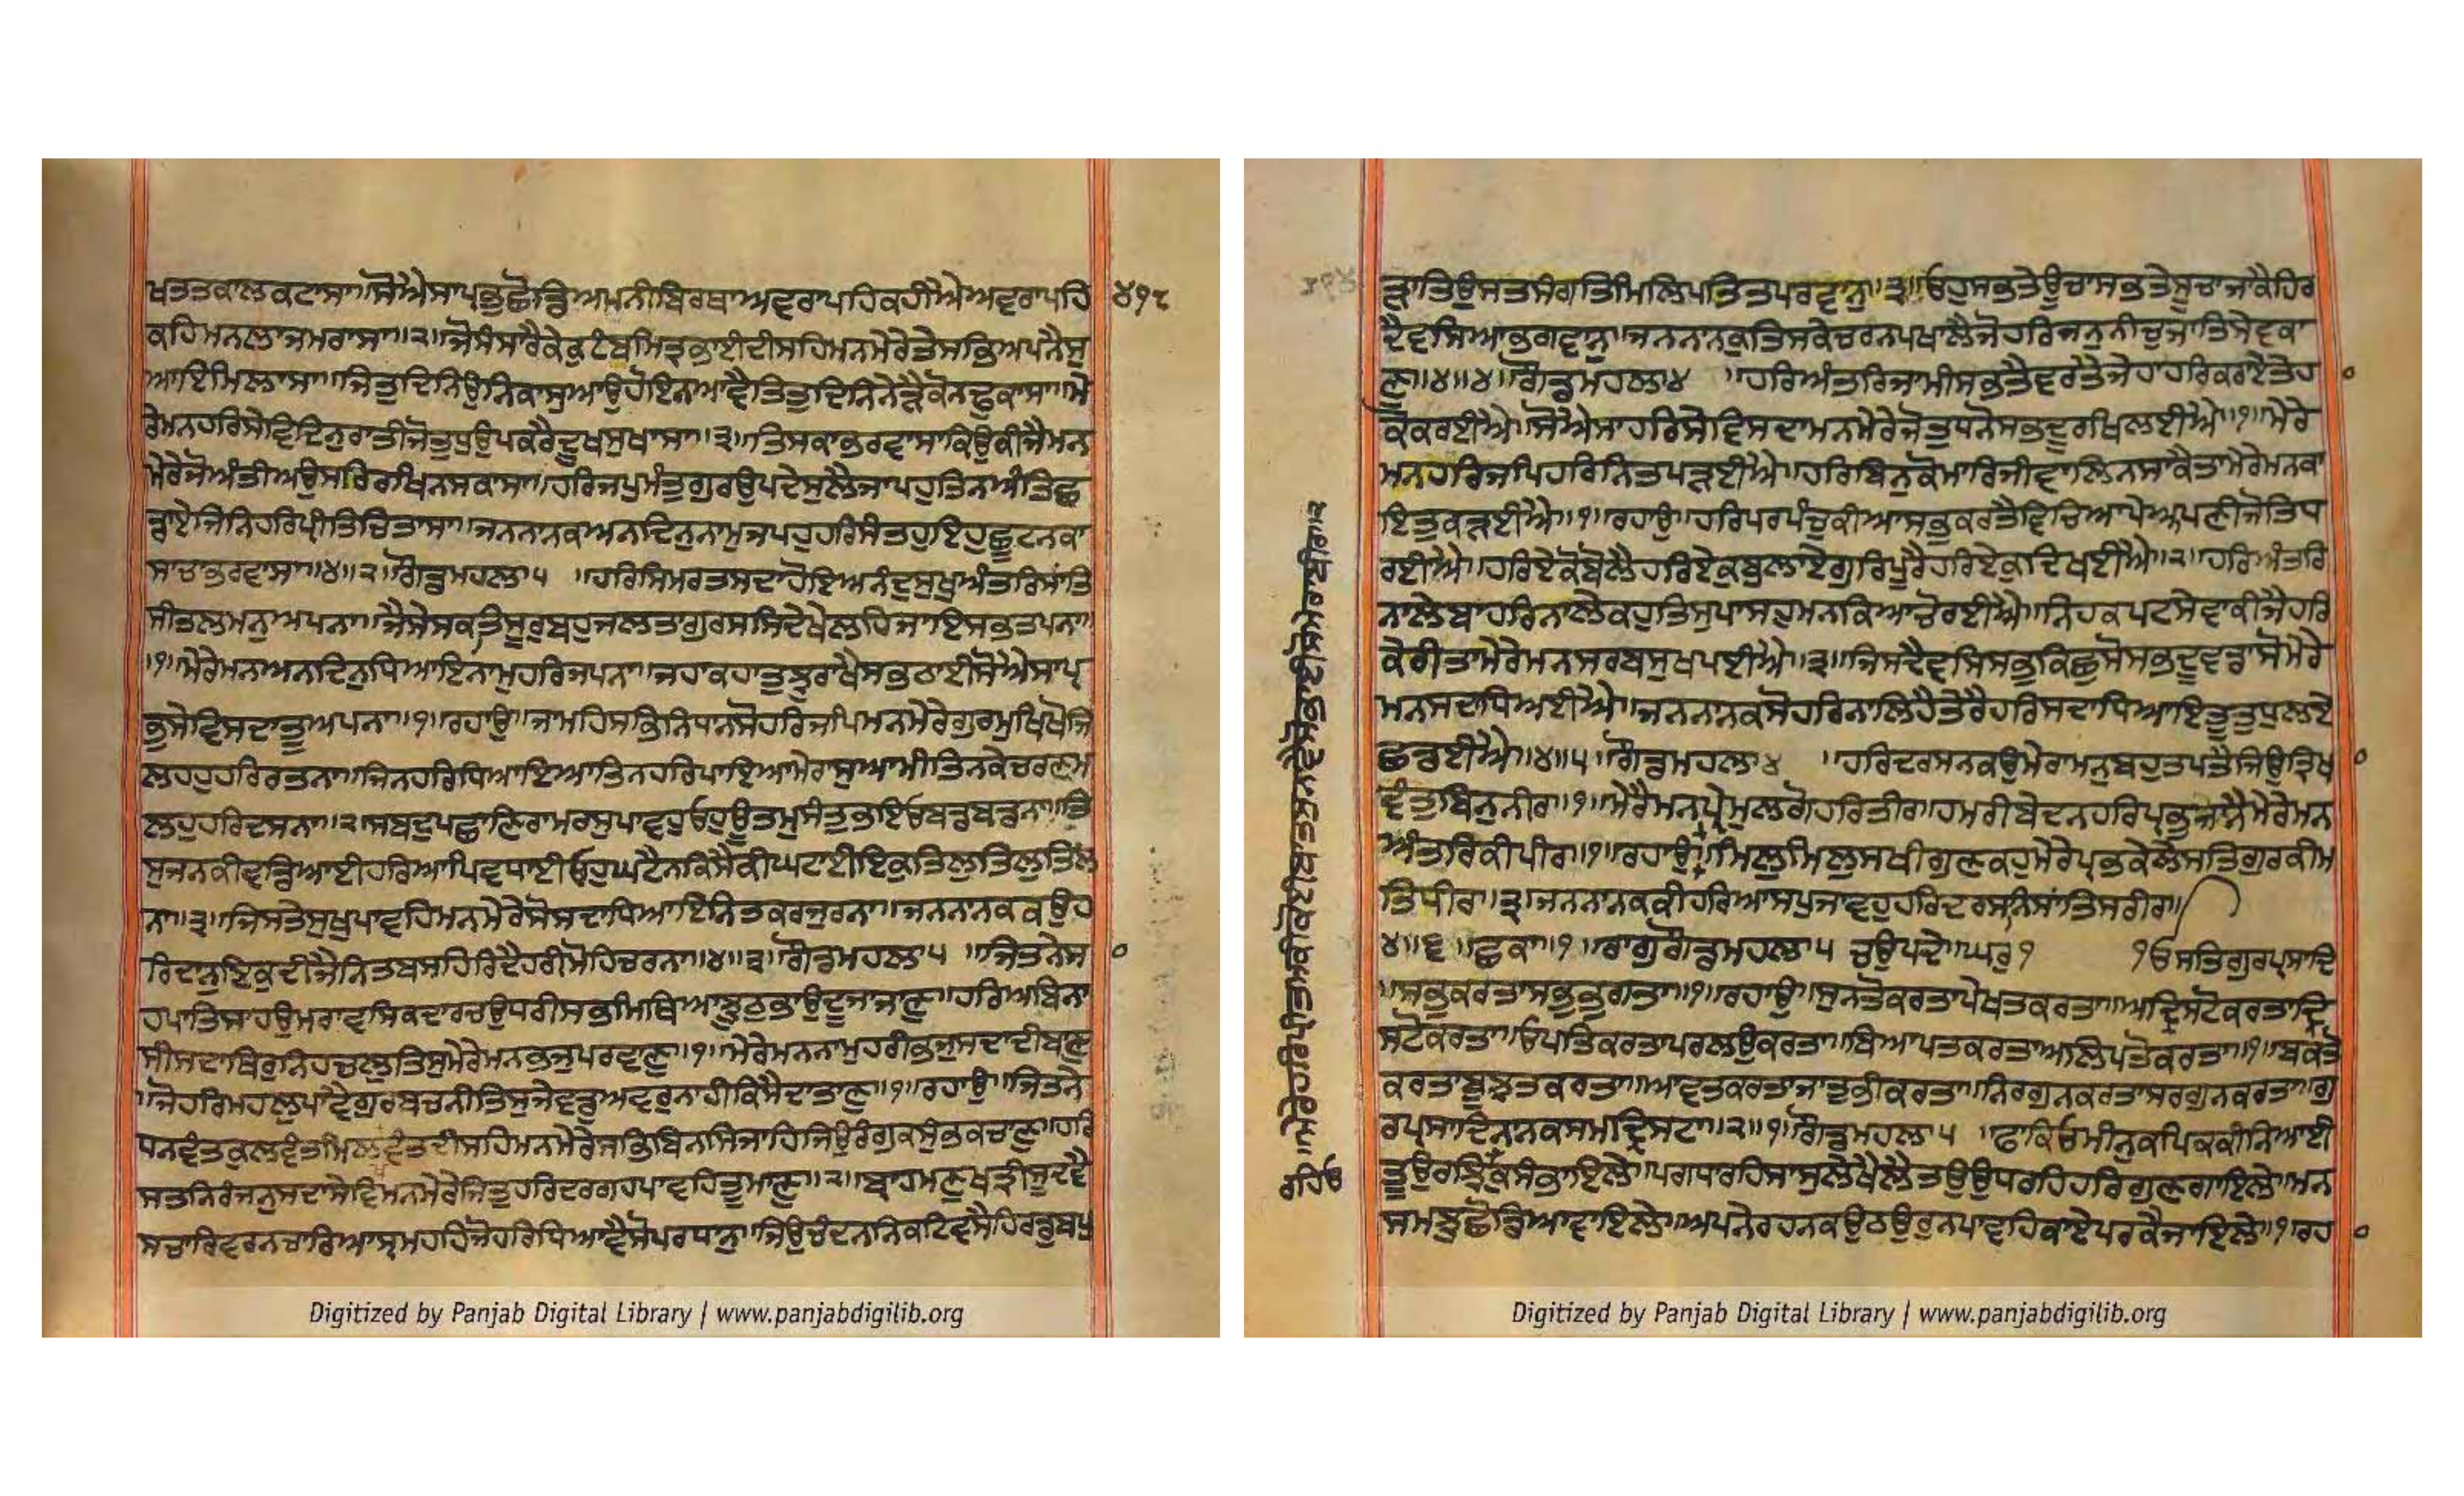 ਖਤਤਕਾਲਕਟਾਸਾ॥ਸੋਐਸਾਪ੍ਰਭੁਛੋਡਿਅਪਨੀਬਿਰਥਾਅਵਰਾਪਹਿਕਹੀਐਅਵਰਾਪਹਿ ੪੧੮
ਕਹਿਮਨਲਾਜਮਰਾਸਾ॥੨॥ਜੋਸੰਸਾਰੈਕੇਕੁਟੰਬਮਿਤ੍ਰਭਾਈਦੀਸਹਿਮਨਮੇਰੇਤੇਸਭਿਅਪਨੈਸੁ
ਆਇਮਿਲਾਸਾ॥ਜਿਤੁਦਿਨਿਉਨਿਕਾਸੁਆਉਹੋਇਨਆਵੈਤਿਤੁਦਿਨਿਨੇੜੈਕੋਨਢੁਕਾਸਾ॥ਮੇ
ਰੇਮਨਹਰਿਸੇਵਿਦਿਨੁਰਾਤੀਜੋਤੁਧੁਉਪਕਰੈਦੂਖਸੁਖਾਸਾ॥੩॥ਤਿਸਕਾਭਰਵਾਸਾਕਿਉਕੀਜੈਮਨ
ਮੇਰੇਜੋਅੰਤੀਅਉਸਰਿਰਖਿਨਸਕਾਸਾ॥ਹਰਿਜਪੁਮੰਤੁਗੁਰਉਪਦੇਸੁਲੈਜਾਪਹੁਤਿਨਅੰਤਿਛ
ਡਾਏਜਿਨਿਹਰਿਪ੍ਰੀਤਿਚਿਤਾਸਾ॥ਜਨਨਾਨਕਅਨਦਿਨੁਨਾਮੁਜਪਹੁਹਰਿਸੰਤਹੁਇਹੁਛੂਟਨਕਾ
ਸਾਚਾਭਰਵਾਸਾ॥੪॥੨॥ਗੌਡਮਹਲਾ੫ ॥ਹਰਿਸਿਮਰਤਸਦਾਹੋਇਅਨੰਦੁਸੁਖੁਅੰਤਰਿਸਾਂਤਿ
ਸੀਤਲਮਨੁਅਪਨਾ॥ਜੈਸੇਸਕਤਿਸੂਰੁਬਹੁਜਲਤਾਗੁਰਸਸਿਦੇਖੇਲਹਿਜਾਇਸਭਤਪਨਾ
॥੧॥ਮੇਰੇਮਨਅਨਦਿਨੁਧਿਆਇਨਾਮੁਹਰਿਜਪਨਾ॥ਜਹਾਕਹਾਤੁਝੁਰਾਖੈਸਭਠਾਈਸੋਐਸਾਪ੍ਰ
ਭੁਸੇਵਿਸਦਾਤੂਅਪਨਾ॥੧॥ਰਹਾਉ॥ਜਾਮਹਿਸਭਿਨਿਧਾਨਸੋਹਰਿਜਪਿਮਨਮੇਰੇਗੁਰਮੁਖਿਖੋਜਿ
ਲਹਹੁਹਰਿਰਤਨਾ॥ਜਿਨਹਰਿਧਿਆਇਆਤਿਨਹਰਿਪਾਇਆਮੇਰਾਸੁਆਮੀਤਿਨਕੇਚਰਣਮ
ਲਹੁਹਰਿਦਸਨਾ॥੨॥ਸਬਦੁਪਛਾਣਿਰਾਮਰਸੁਪਾਵਹੁਓਹੁਊਤਮੁਸੰਤੁਭਇਓਬਡਬਡਨਾ॥ਤਿ
ਸੁਜਨਕੀਵਡਿਆਈਹਰਿਆਪਿਵਧਾਈਓਹੁਘਟੈਨਕਿਸੈਕੀਘਟਾਈਇਕੁਤਿਲੁਤਿਲੁਤਿਲ
ਨਾ॥੩॥ਜਿਸਤੇਸੁਖਪਾਵਹਿਮਨਮੇਰੇਸੋਸਦਾਧਿਆਇਨਿਤਕਰਜੁਰਨਾ॥ਜਨਨਾਨਕਕਉਹ
ਰਿਦਾਨੁਇਕੁਦੀਜੈਨਿਤਬਸਹਿਰਿਦੈਹਰੀਮੋਹਿਚਰਨਾ॥੪॥੩॥ਗੌਡਮਹਲਾ੫ ॥ਜਿਤਨੇਸ
ਹਪਾਤਿਸਾਹਉਮਰਾਵਸਿਕਦਾਰਚਉਧਰੀਸਭਿਮਿਥਿਆਝੂਠੁਭਾਉਦੂਜਾਜਾਣੁ॥ਹਰਿਅਬਿਨਾ
ਸੀਸਦਾਥਿਰੁਨਿਹਚਲੁਤਿਸੁਮੇਰੇਮਨਭਜੁਪਰਵਾਣੁ॥੧॥ਮੇਰੇਮਨਨਾਮੁਹਰੀਭਜੁਸਦਾਦੀਬਾਣੁ
॥ਜੋਹਰਿਮਹਲੁਪਾਵੈਗੁਰਬਚਨੀਤਿਸੁਜੇਵਡੁਅਵਰੁਨਾਹੀਕਿਸੈਦਾਤਾਣੁ॥੧॥ਰਹਾਉ॥ਜਿਤਨੇ
ਧਨਵੰਤਕੁਲਵੰਤਮਿਲਵੰਤਦੀਸਹਿਮਨਮੇਰੇਸਭਿਬਿਨਸਿਜਾਹਿਜਿਉਰੰਗੁਕਸੁੰਭਕਚਾਣੁ॥ਹਰਿ
ਸਤਨਿਰੰਜਨੁਸਦਾਸੇਵਿਮਨਮੇਰੇਜਿਤੁਹਰਿਦਰਗਹਪਾਵਹਿਤੂਮਾਣੁ॥੨॥ਬ੍ਰਾਹਮਣੁਖਤ੍ਰੀਸੂਦਵੈ
ਸਚਾਰਿਵਰਨਚਾਰਿਆਸ੍ਰਮਹਹਿਜੋਹਰਿਧਿਆਵੈਸੋਪਰਧਾਨੁ॥ਜਿਉਚੰਦਨਨਿਕਟਿਵਸੈਹਿਰਡੁਬਪੁ
Digitized by Panjab Digital Library | www.panjabdigilib.org
ੜਾਤਿਉਸਤਸੰਗਤਿਮਿਲਿਪਤਿਤਪਰਵਾਨੁ॥੩॥ਓਹੁਸਭਤੇਊਚਾਸਭਤੇਸੂਚਾਜਾਕੈਹਿਰ
ਦੈਵਸਿਆਭਗਵਾਨੁ॥ਜਨਨਾਨਕੁਤਿਸਕੇਚਰਨਪਖਾਲੈਜੋਹਰਿਜਨੁਨੀਚੁਜਾਤਿਸੇਵਕਾ
ਣੁ॥੪॥੪॥ਗੌਡਮਹਲਾ੪ ॥ਹਰਿਅੰਤਰਿਜਾਮੀਸਭਤੈਵਰਤੈਜੇਹਾਹਰਿਕਰਾਏਤੇਹ
ਕੋਕਰਈਐ॥ਸੋਐਸਾਹਰਿਸੇਵਿਸਦਾਮਨਮੇਰੇਜੋਤੁਧਨੋਸਭਦੂਰਖਿਲਈਐ॥੧॥ਮੇਰੇ
ਮਨਹਰਿਜਪਿਹਰਿਨਿਤਪੜਈਐ॥ਹਰਿਬਿਨੁਕੋਮਾਰਿਜੀਵਾਲਿਨਸਾਕੈਤਾਮੇਰੇਮਨਕਾ
ਇਤੁਕੜਈਐ॥੧॥ਰਹਾਉ॥ਹਰਿਪਰਪੰਚੁਕੀਆਸਭੁਕਰਤੈਵਿਚਿਆਪੇਅਪਣੀਜੋਤਿਧ
ਰਈਐ॥ਹਰਿਏਕੋਬੋਲੈਹਰਿਏਕੁਬੁਲਾਏਗੁਰਿਪੂਰੈਹਰਿਏਕੁਦਿਖਈਐ॥੨॥ਹਰਿਅੰਤਰਿ
ਨਾਲੇਬਾਹਰਿਨਾਲੇਕਹੁਤਿਸੁਪਾਸਹੁਮਨਕਿਆਚੋਰਈਐ॥ਨਿਹਕਪਟਸੇਵਾਕੀਜੈਹਰਿ
ਕੇਰੀਤਾਮੇਰੇਮਨਸਰਬਸੁਖਪਈਐ॥੩॥ਜਿਸਦੈਵਸਿਸਭੁਕਿਛੁਸੋਸਭਦੂਵਡਾਸੋਮੇਰੇ
ਮਨਸਦਾਧਿਅਈਐ॥ਜਨਨਾਨਕਸੋਹਰਿਨਾਲਿਹੈਤੇਰੈਹਰਿਸਦਾਧਿਆਇਤੂਤੁਧੁਲਏ
ਛਡਈਐ॥੪॥੫॥ਗੌਡਮਹਲਾ੪ ॥ਹਰਿਦਰਸਨਕਉਮੇਰਾਮਨੁਬਹੁਤਪਤੈਜਿਉਤ੍ਰਿਖ
ਵੰਤੁਬਿਨੁਨੀਰ॥੧॥ਮੇਰੈਮਨਪ੍ਰੇਮੁਲਗੋਹਰਿਤੀਰ॥ਹਮਰੀਬੇਦਨਹਰਿਪ੍ਰਭੁਜਾਨੈਮੇਰੇਮਨ
ਅੰਤਰਿਕੀਪੀਰ॥੧॥ਰਹਾਉ॥ਮਿਲੁਮਿਲੁਸਖੀਗੁਣਕਹੁਮੇਰੇਪ੍ਰਭਕੇਲੇਸਤਿਗੁਰਕੀਮ
ਤਿਧੀਰ॥੩॥ਜਨਨਾਨਕਕੀਹਰਿਆਸਪੁਜਾਵਹੁਹਰਿਦਰਸਨਿਸਾਂਤਿਸਰੀਰ॥
੪॥੬॥ਛਕਾ॥੧॥ਰਾਗੁਗੌਡਮਹਲਾ੫ ਚਉਪਦੇ॥ਘਰੁ੧ ੧ਓਸਤਿਗੁਰਪ੍ਰਸਾਦਿ
॥ਸਭੁਕਰਤਾਸਭੁਭੁਗਤਾ॥੧॥ਰਹਾਉ॥ਸੁਨਤੋਕਰਤਾਪੇਖਤਕਰਤਾ॥ਅਦ੍ਰਿਸਟੋਕਰਤਾਦ੍ਰਿ
ਸਟੋਕਰਤਾ॥ਓਪਤਿਕਰਤਾਪਰਲਉਕਰਤਾ॥ਬਿਆਪਤਕਰਤਾਅਲਿਪਤੋਕਰਤਾ॥੧॥ਬਕਤੋ
ਕਰਤਾਬੂਝਤਕਰਤਾ॥ਆਵਤਕਰਤਾਜਾਤੁਭੀਕਰਤਾ॥ਨਿਰਗੁਨਕਰਤਾਸਰਗੁਨਕਰਤਾ॥ਗੁ
ਰਪ੍ਰਸਾਦਿਨਾਨਕਸਮਦ੍ਰਿਸਟਾ॥੨॥੧॥ਗੌਡਮਹਲਾ੫ ॥ਫਾਕਿਓਮੀਨੁਕਪਿਕਕੀਨਿਆਈ
ਤੂਉਰਝਿਕਸੰਭਾਇਲੇ॥ਪਗਧਾਰਹਿਸਾਸੁਲੇਖੈਲੈਤਉਉਧਰਹਿਹਰਿਗੁਣਗਾਇਲੇ॥ਮਨ
ਸਮਝੁਛੋਡਿਆਵਾਇਲੇ॥ਅਪਨੇਰਹਨਕਉਠਉਰੁਨਪਾਵਹਿਕਾਏਪਰਕੈਜਾਇਲੇ॥੧॥ਰਹ
Digitized by Panjab Digital Library | www.panjabdigilib.org